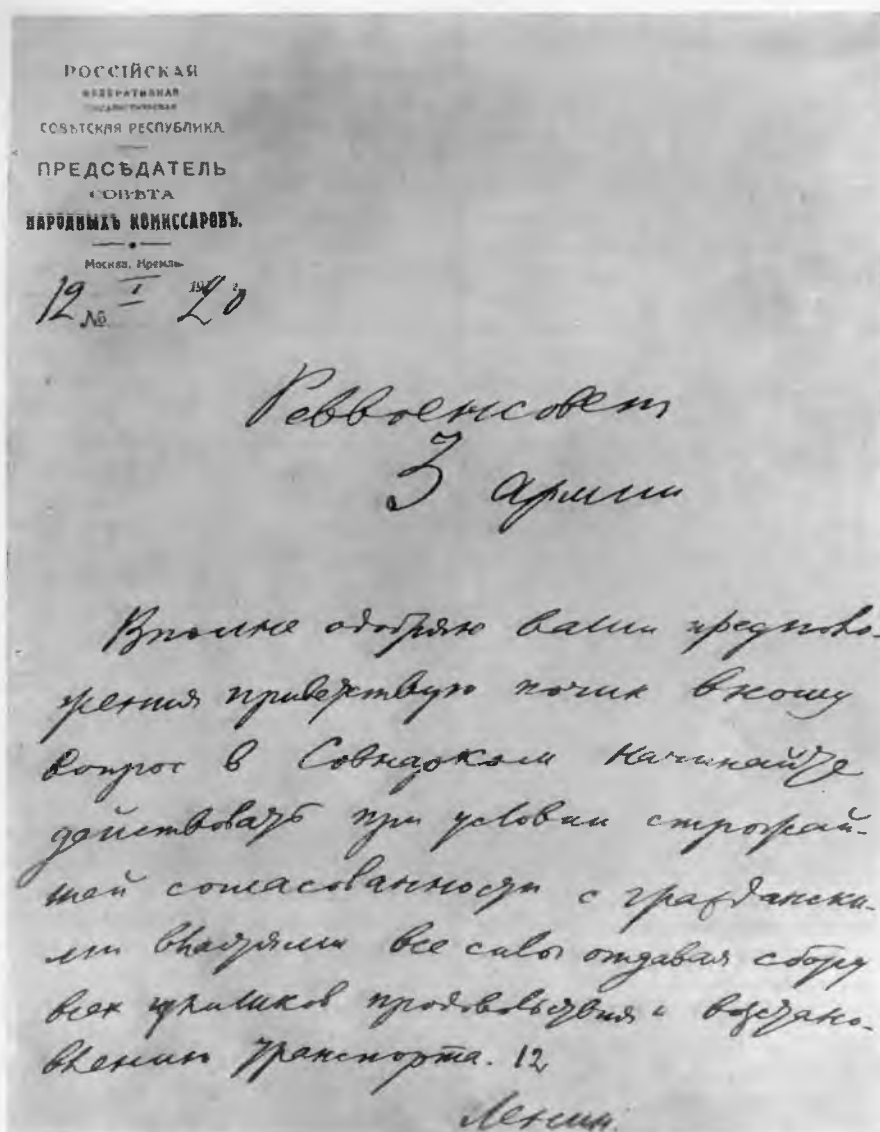 РОССІЙСКАЯ
ФЕДЕРАТИВНАЯ
СОЦІАЛИСТИЧЕСКАЯ
СОВѢТСКАЯ РЕСПУБЛИКА.
ПРЕДСѢДАТЕЛЬ
СОВѢТА
НАРОДНЫХЪ КОМИССАРОВЪ.
Москва, Кремль.
12 I 1920
№
Реввоенсовет
3 армии
Вполне одобряю ваши предполо-
жения приветствую почин вношу
вопрос в Совнарком Начинайте
действовать при условии строжай-
шей согласованности с граждански-
ми властями все силы отдавая сбору
всех излишков продовольствия и восстано-
влению транспорта. 12
Ленин.